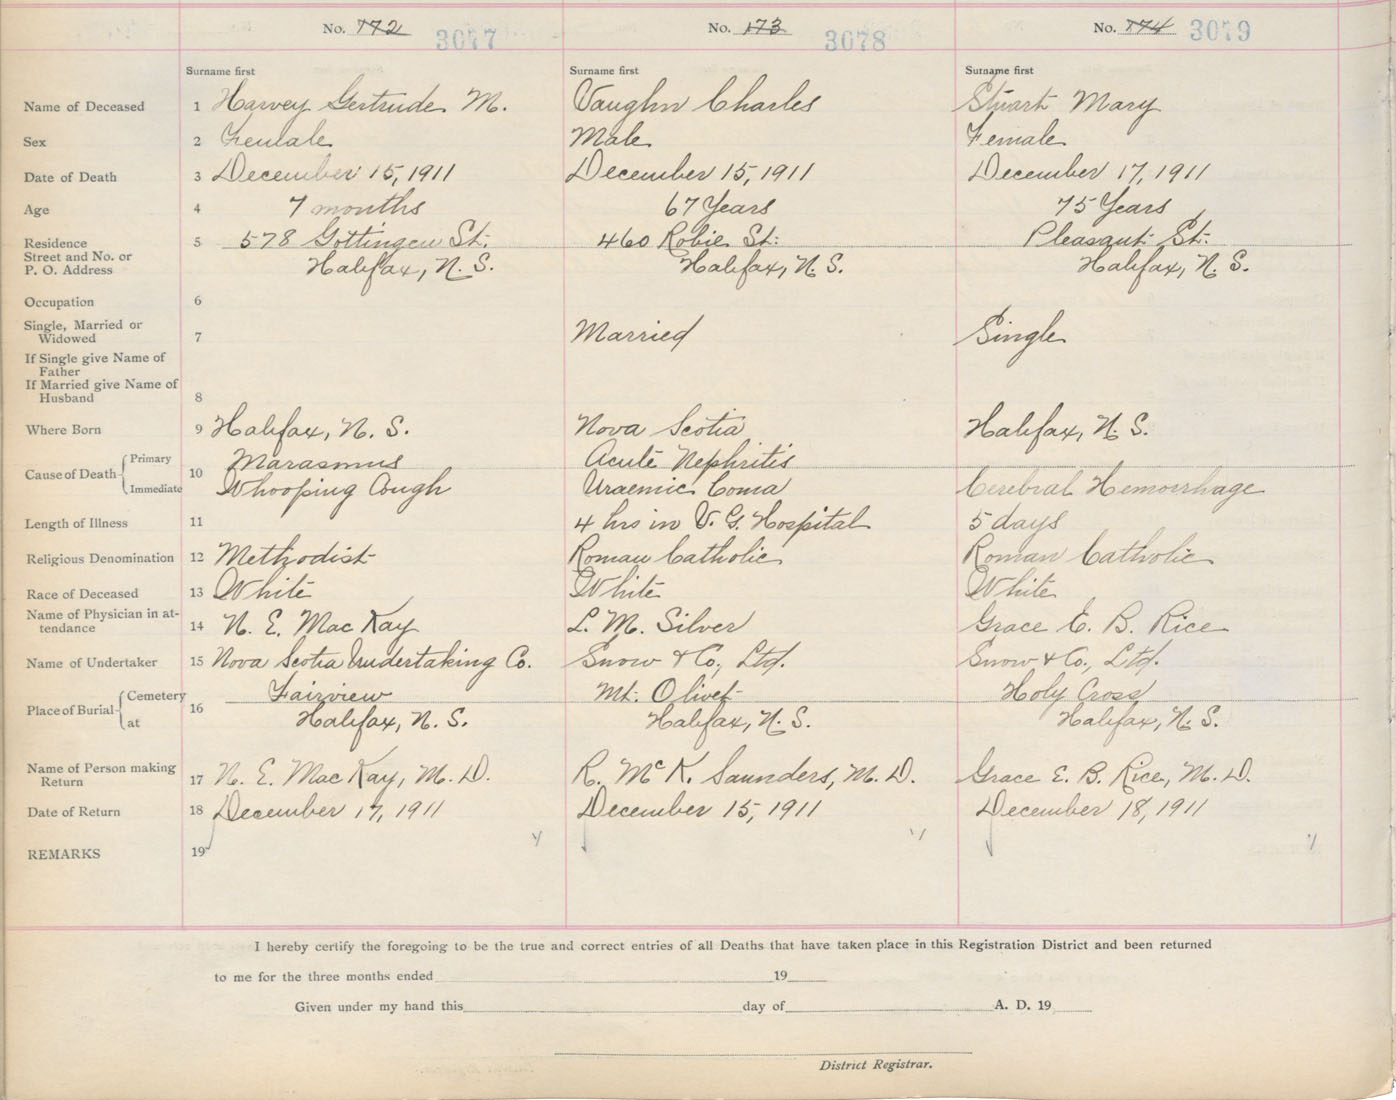 No. 172 3077 No. 173 3078 No. 174 3079
Surname first Surname first Surname first
Name of Deceased 1 Harvey Gertrude M. Vaughn Charles Stuart Mary
Sex 2 Female Male Female
Date of Death 3 December 15, 1911 December 15, 1911 December 17, 1911
Age 4 7 months 67 Years 75 Years
Residence 5 578 Gottingen St. 460 Robie St. Pleasant St.
Street and No. or
P. O. Address Halifax, N. S. Halifax, N. S. Halifax, N. S.
Occupation 6
Single, Married or
Widowed 7 Married Single
If Single give Name of
Father
If Married give Name of
Husband 8
Where Born 9 Halifax, N. S. Nova Scotia Halifax, N. S.
Primary Marasmus Acute Nephritis
Cause of Death 10
Immediate Whooping Cough Uraemic Coma Cerebral Hemorrhage
Length of Illness 11 4 hrs in V. G. Hospital 5 days
Religious Denomination 12 Methodist Roman Catholic Roman Catholic
Race of Deceased 13 White White White
Name of Physician in at-
tendance 14 N. E. Mac Kay L. M. Silver Grace E. B. Rice
Name of Undertaker 15 Nova Scotia Undertaking Co. Snow & Co., Ltd. Snow & Co., Ltd.
Cemetery Fairview Mt. Olivet Holy Cross
Place of Burial 16
at Halifax, N. S. Halifax, N. S. Halifax, N. S.
Name of Person making
Return 17 N. E. Mac Kay, M. D. R. McK. Saunders, M. D. Grace E. B. Rice, M. D.
Date of Return 18 December 17, 1911 December 15, 1911 December 18, 1911
REMARKS 19
I hereby certify the foregoing to be the true and correct entries of all Deaths that have taken place in this Registration District and been returned
to me for the three months ended 19
Given under my hand this day of A. D. 19
District Registrar.